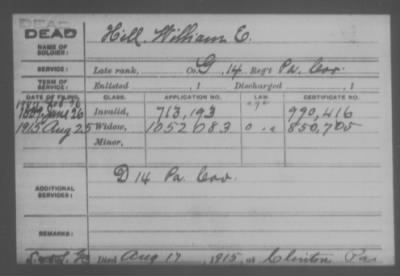 DEAD
DEAD
NAME OF SOLDIER: Hill, William C.
SERVICE: Late rank, Co. G, 14 Reg't Pa. Cav.
TERM OF SERVICE: Enlisted , 1 Discharged , 1
DATE OF FILING. CLASS. APPLICATION NO. LAW. CERTIFICATE NO.
June 26 Invalid, 713,193 990,416
1915 Aug 25 Widow, 1052083 850,705
Minor,
ADDITIONAL SERVICES: D 14 Pa. Cav.
REMARKS:
Died Aug 17, 1915, at Clinton Pa.